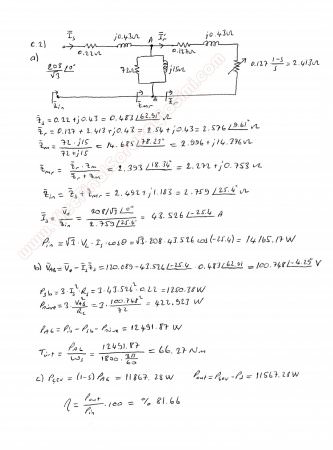 C.2)
a)
Īs
j0.43Ω
0.22Ω
A
Īr
0.127Ω
j0.43Ω
208/√3 ∠0°
72Ω
j15Ω
0.127 (1-s)/s = 2.413Ω
Z̄in
Z̄mr
Z̄r
Z̄s = 0.22 + j0.43 = 0.483∠62.91° Ω
Z̄r = 0.127 + 2.413 + j0.43 = 2.54 + j0.43 = 2.576∠9.61° Ω
Z̄m = 72·j15 / 72+j15 = 14.685∠78.23° = 2.996 + j14.376 Ω
Z̄mr = Z̄r·Z̄m / Z̄r+Z̄m = 2.393∠18.34° = 2.272 + j0.753 Ω
Z̄in = Z̄s + Z̄mr = 2.492 + j1.183 = 2.759∠25.4° Ω
Īs = V̄s / Z̄in = 208/√3∠0° / 2.759∠25.4° = 43.526∠-25.4 A
Pin = √3·VL·I1·cosθ = √3·208·43.526 cos(-25.4) = 14165.17W
b) V̄AB = V̄s - Īs Z̄s = 120.089 - 43.526∠-25.4 · 0.483∠62.91 = 100.748∠-4.25 V
Psk = 3·Is²·Rs = 3·43.526²·0.22 = 1250.38W
Pnüve = 3·VAB²/Rc = 3·100.748²/72 = 422.923W
PAG = Pin - Psk - Pnüve = 12491.87W
Tind = PAG/ωs = 12491.87 / 1800·2π/60 = 66.27 N.m
c) Pçev = (1-s) PAG = 11867.28W
Pout = Pçev - Ps = 11567.28W
η = Pout/Pin ·100 = % 81.66